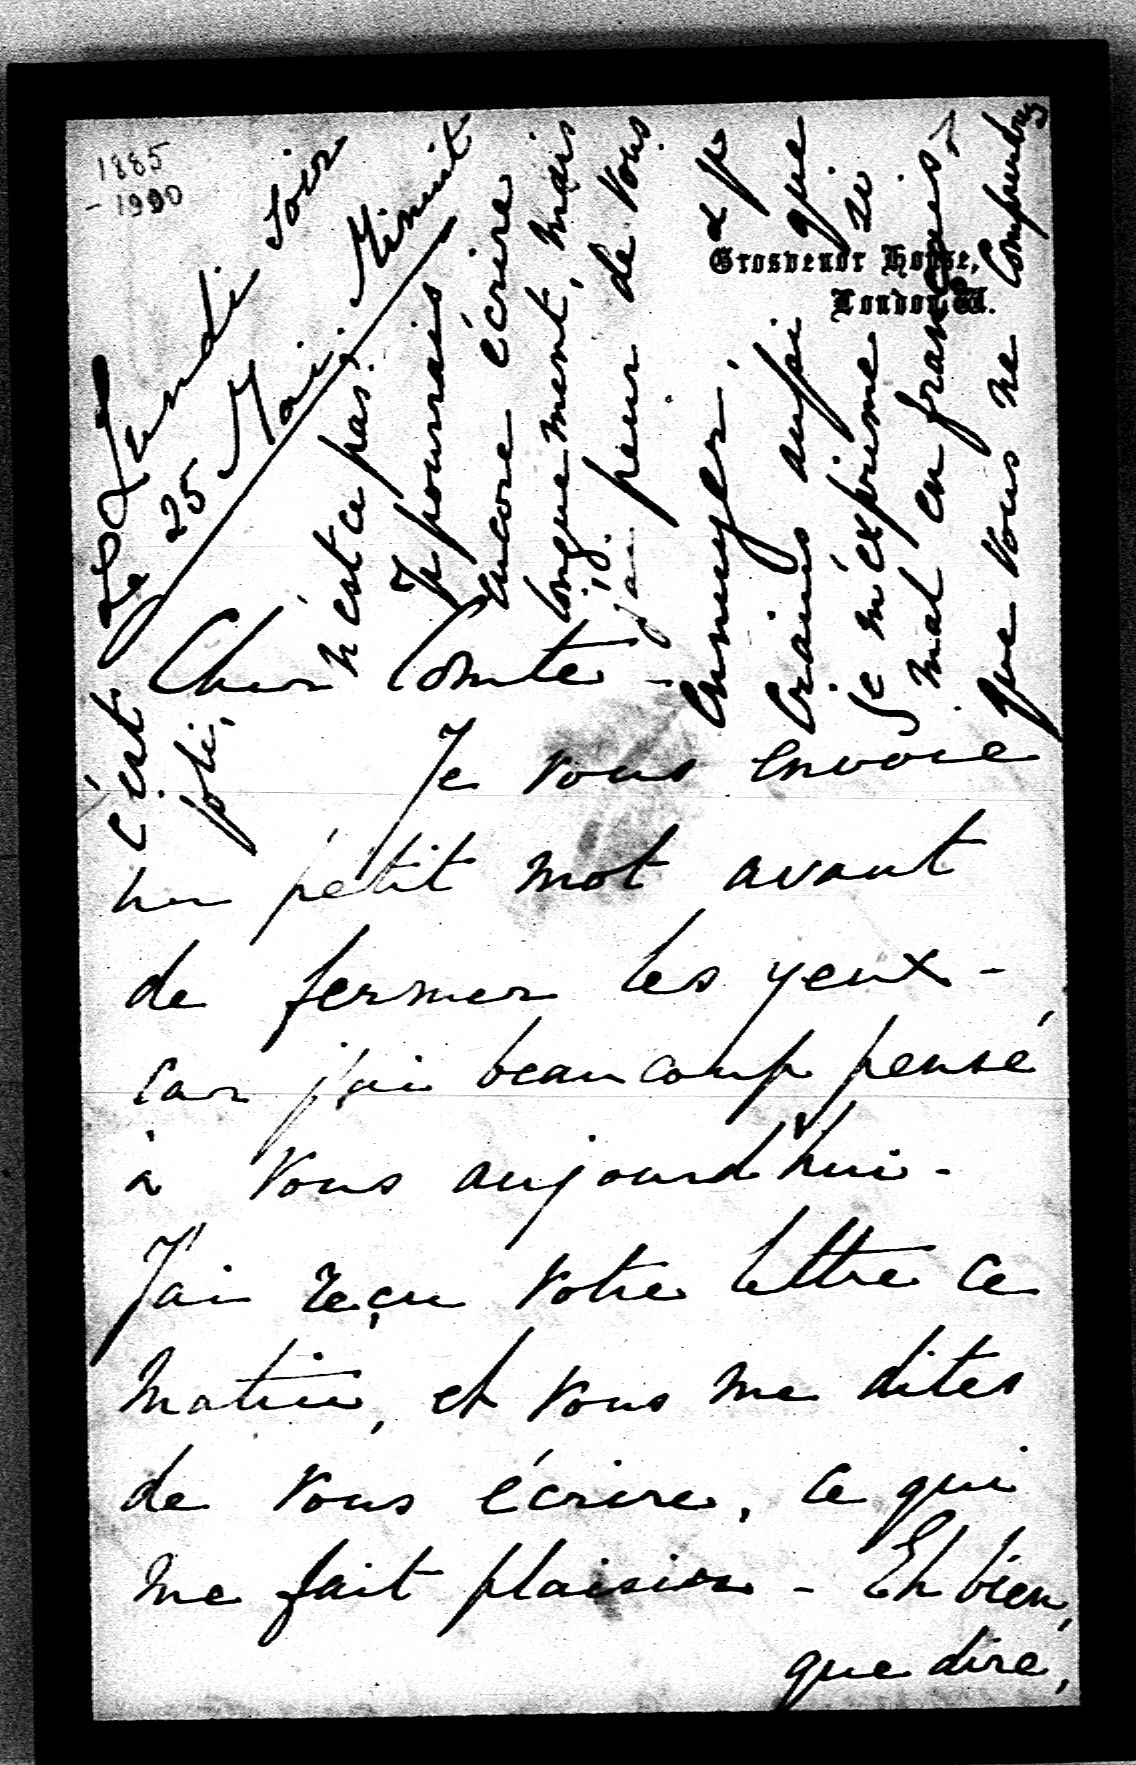 1885
- 1990
Lundi soir
25 Mai. Minuit
Grosvenor House,
London, W.
Cher Comte -
Je vous envoie
un petit mot avant
de fermer les yeux -
car j'ai beaucoup pensé
à vous aujourd'hui -
J'ai reçu votre lettre ce
matin, et vous me dites
de vous écrire, ce qui
me fait plaisir - Eh bien,
que dire,
c'est
joli,
n'est ce pas.
Je pourrais
encore écrire
longuement, mais
j'ai peur de vous
ennuyer,
crains aussi que
je m'exprime si
mal en français,
que vous ne comprendrez